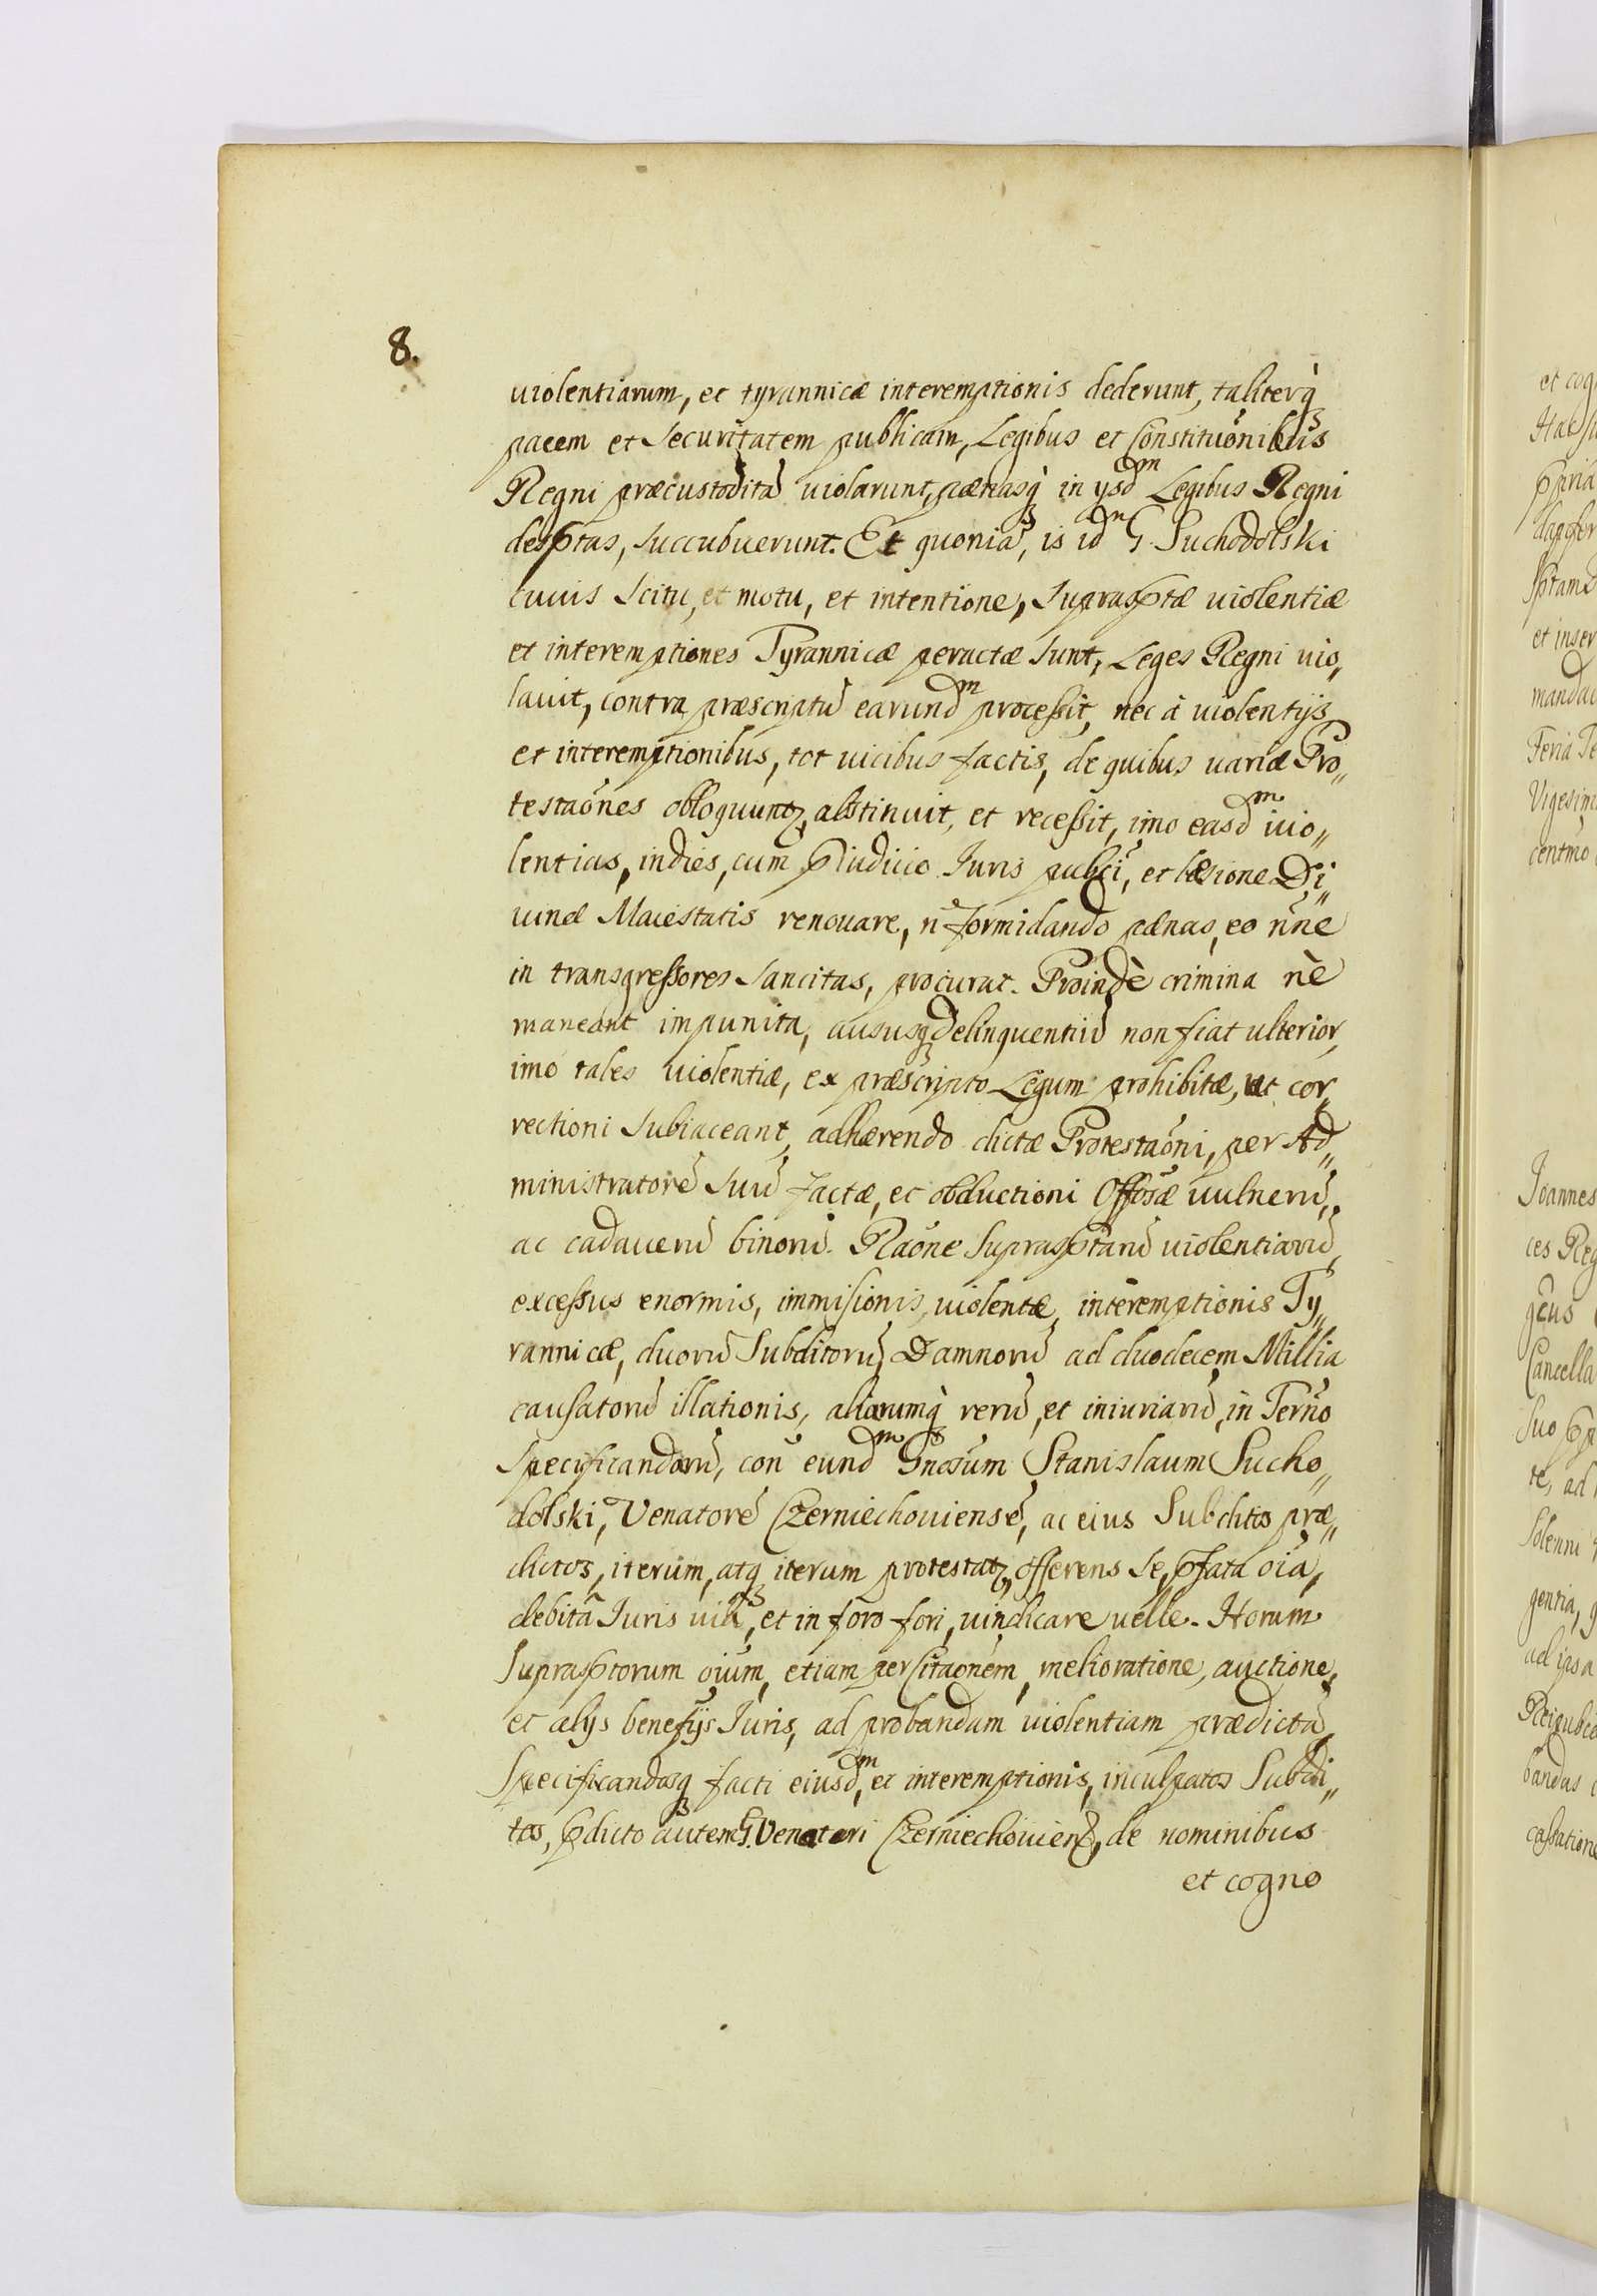 8.
uiolentiarum, et tyrannicæ interemptionis dederunt, taliterq̀
pacem et Securitatem publicam, Legibus et Constituõnibus
Regni præcustoditã uiolarunt, pænasq̀ in ysdm Legibus Regni
desptas, succubuerunt. Et quoniã, is idm G. Suchodolski
cuius Scitu, et motu, et intentione, Suprasptæ uiolentiæ
et interemptiones Tyrannicæ peractæ Sunt, Leges Regni uio„
lauit, contra præscriptũ earundm proceßit, nec à uiolentijs
et interemptionibus, tot uicibus factis, de quibus uariæ Pro„
testaõnes obloquuntꝫ, abstinuit, et receßit, imo easdm uio„
lentias, indies, cum ꝓiudicio Juris publci, et læsione Di„
uinæ Maiestatis renouare, ñ formidando pænas, eo ñne
in transgreßores Sancitas, procurat. Proindè crimina nè
maneant impunita, aususqꝫ delinquentiũ non fiat ulterior,
imò tales uiolentiæ, ex præscripto Legum prohibitæ, ut cor„
rectioni Subiaceant, adhærendo dictæ Protestaõni, per Ad„
ministratorẽ Suũ factæ, et obductioni Offõsæ uulnerũ,
ac cadauerũ binorũ. Raõne Suprasptarũ uiolentiarũ,
exceßus enormis, immisionis, uiolentæ, interemptionis Ty„
rannicæ, duorũ Subditorũ, Damnorũ ad duodecem Millia
causatorũ illationis, aliarumq̀ rerũ, et iniuriarũ, in Terño
Specificandorũ, coñ eundm Gnosum Stanislaum Sucho„
dolski, Venatorẽ Czerniechouiensẽ, ac eius Subditos præ„
dictos, iterum, atqꝫ iterum protestatꝫ, offerens Se, ꝓfata oĩa,
debitã Juris uiã, et in foro fori, uindicare uelle. Horum
Suprasptorum oĩum, etiam per Citaõnem, melioratione, auctione,
et alijs beneficijs Juris, ad probandam uiolentiam prædictã,
Specificandosqꝫ facti eiusdm, et interemptionis, inculpatos Subdi„
tos, ꝓdicto autem G. Venatori Czerniechouienß, de nominibus
et cogno